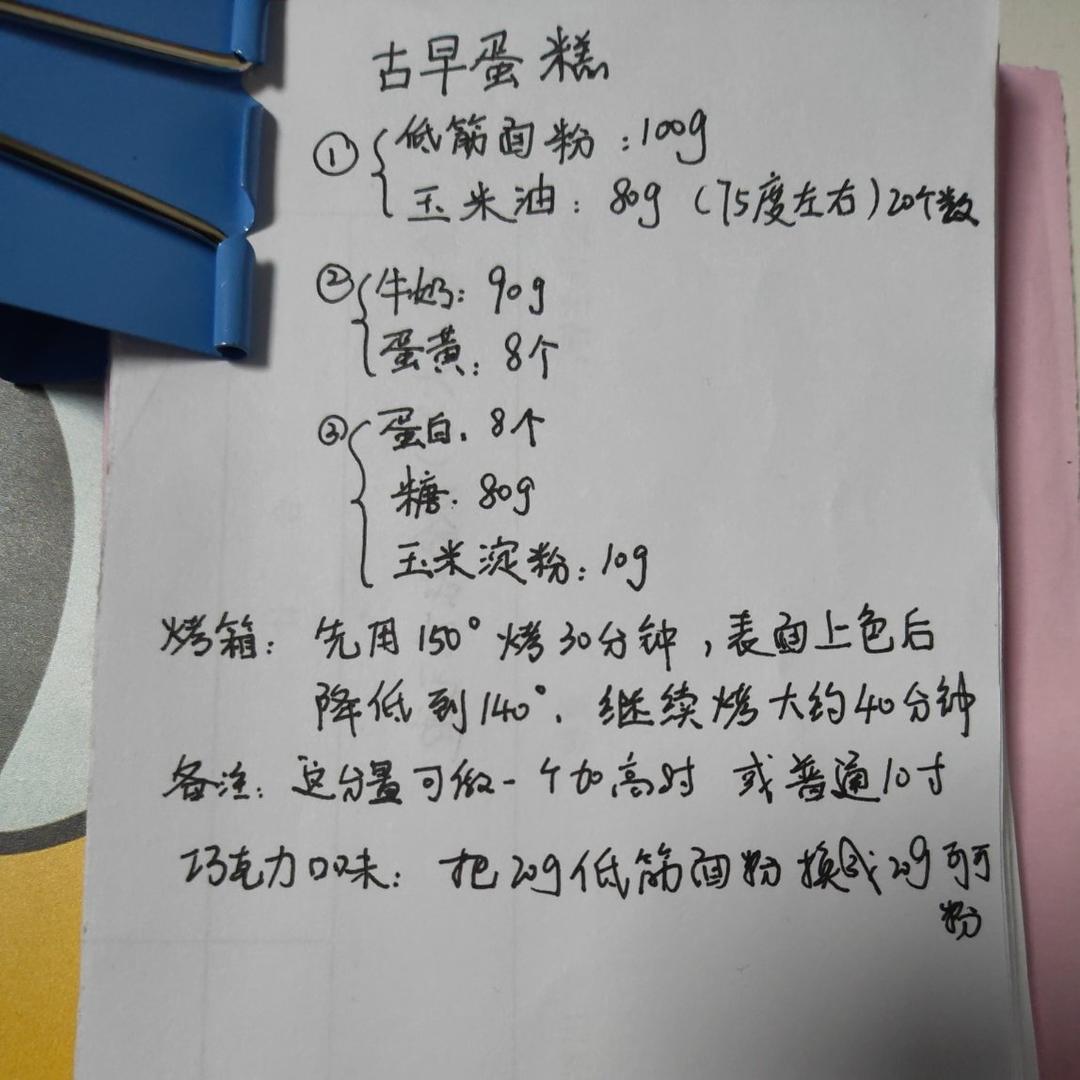 古早蛋糕
① 低筋面粉：100g
玉米油：80g（75度左右）20个数
② 牛奶：90g
蛋黄：8个
③ 蛋白．8个
糖．80g
玉米淀粉：10g
烤箱：先用150°烤30分钟，表面上色后
降低到140°．继续烤大约40分钟
备注：这分量可做一个加高 或普通10寸
巧克力口味：把20g低筋面粉换成20g可可
粉